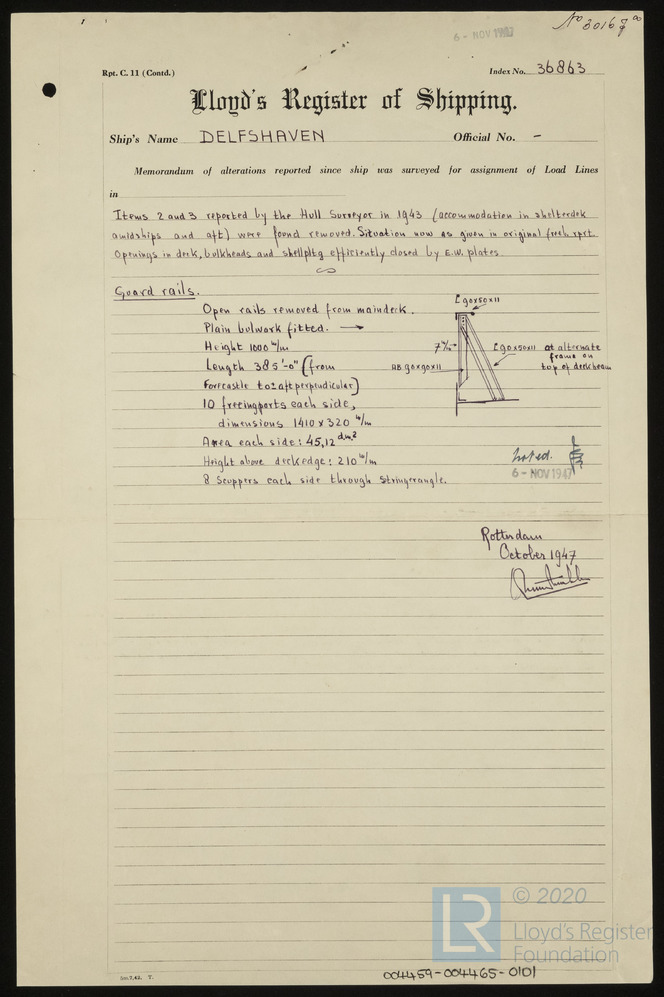 No 30167
6 - NOV 1947
Rpt. C. 11 (Contd.)
Index No. 36863
Lloyd's Register of Shipping.
Ship's Name DELFSHAVEN Official No. -
Memorandum of alterations reported since ship was surveyed for assignment of Load Lines
in
Items 2 and 3 reported by the Hull Surveyor in 1943 (accommodation in shelterdek
amidships and aft) were found removed. Situation now as given in original fresh rprt.
Openings in deck, bulkheads and shellpltg efficiently closed by E.W. plates.
Guard rails.
Open rails removed from maindeck.
Plain bulwork fitted. →
Height 1000 m/m
Length 385'-0" (from
Forecastle to 2 aft perpendicular)
10 freeingports each side,
dimensions 1410 x 320 m/m
Area each side: 45,12 dm.2
Height above deckedge: 210 m/m
8 Scuppers each side through stringerangle.
L 90x50x11
7 m/m
L 90x50x11 at alternate
frame on
top of deckbeam
AB 90x90x11
Noted.
6 - NOV 1947
Rotterdam
October 1947
© 2020
LR
Lloyd's Register
Foundation
004459-004465-0101